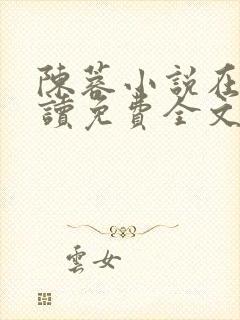 陳蓉小説在
讀免費全文
雲女